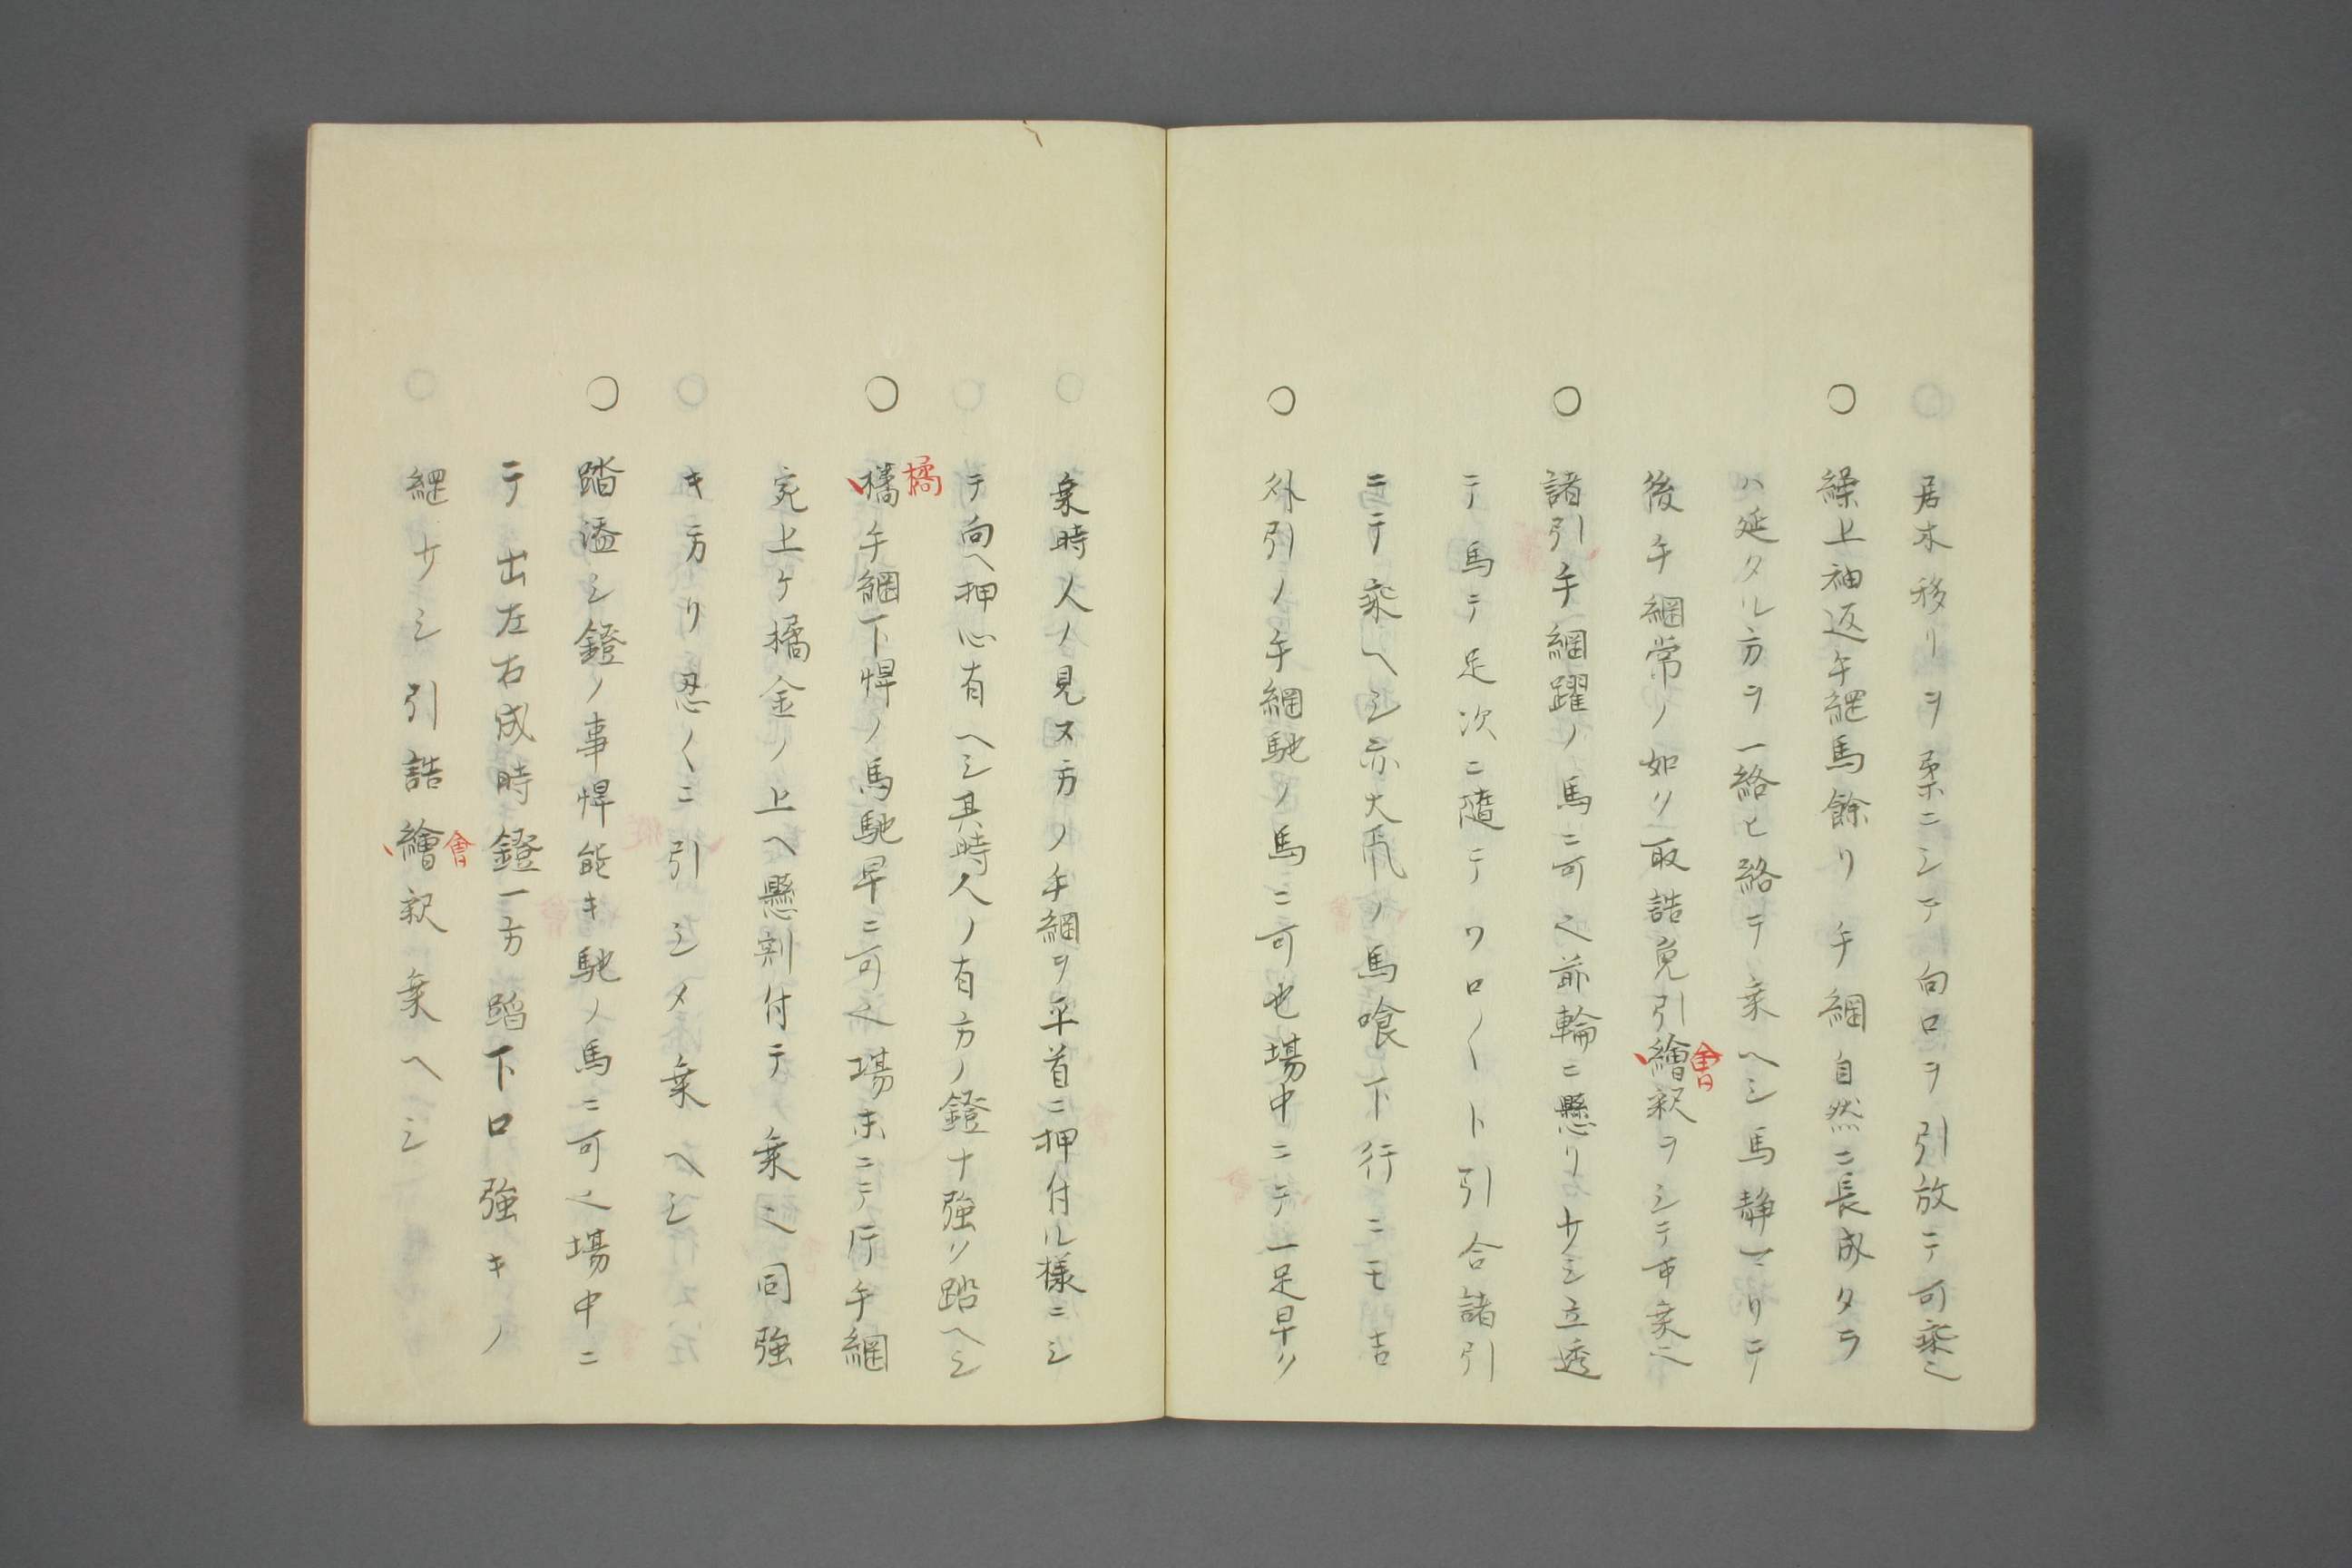 居木移リヲ柔ニシテ向口ヲ引放テ可乗之
○繰上袖返手綱馬餘リ手綱自然ニ長成タラ
ハ延タル方ヲ一絡ヒ絡テ乗ヘシ馬静マリテ
後手綱常ノ如ク取詰免引繪釈ヲシテ可乗之
會
○諸引手綱躍ノ馬ニ可之前輪ニ懸リサシ立透
テ馬テ足次ニ随テワロ〱ト引合諸引
ニテ乗ヘシ亦大乕ノ馬喰下行ニモ吉
○外引ノ手綱馳ノ馬ニ可也場中ニテ一足早ク
乗時人ノ見ヌ方ノ手綱ヲ平首ニ押付ル様ニシ
テ向ヘ押心有ヘシ其時人ノ有方ノ鐙ナ強ク踏ヘシ
○橘手綱下悍ノ馬馳早ニ可之場末ニテ片手綱
橘
宛上ケ橘金ノ上ヘ懸刻付テ乗之同強
キ方リ忍〱ニ引シメ乗ヘシ
○踏溢シ鐙ノ事悍能キ馳ノ馬ニ可之場中ニ
テ出左右成時鐙一方蹈下口強キノ
綱サシ引詰繪釈乗ヘシ
會